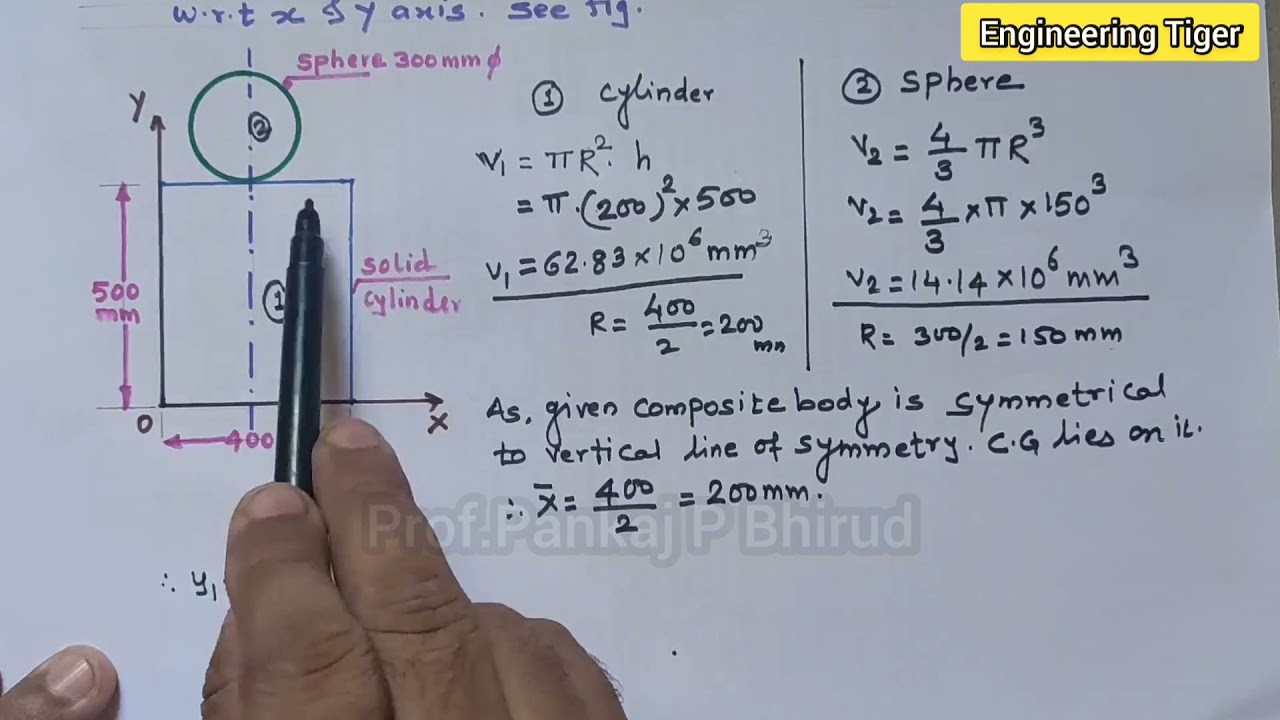 w.r.t x & y axis. see fig.
Engineering Tiger
sphere 300mm ϕ
Y
②
500
mm
①
solid
cylinder
O
400
X
① cylinder
V₁ = πR². h
= π.(200)² × 500
V₁ = 62.83 × 10⁶ mm³
R = 400/2 = 200 mm
② Sphere
V₂ = 4/3 πR³
V₂ = 4/3 × π × 150³
V₂ = 14.14 × 10⁶ mm³
R = 300/2 = 150 mm
As, given composite body is symmetrical
to vertical line of symmetry. C.G lies on it.
∴ x̄ = 400/2 = 200 mm.
Prof.Pankaj P Bhirud
∴ y₁